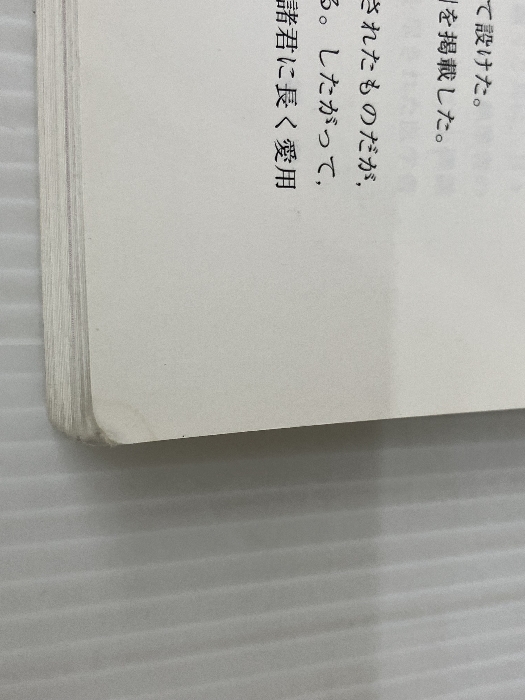 て設けた。
を掲載した。
されたものだが,
る。したがって,
諸君に長く愛用